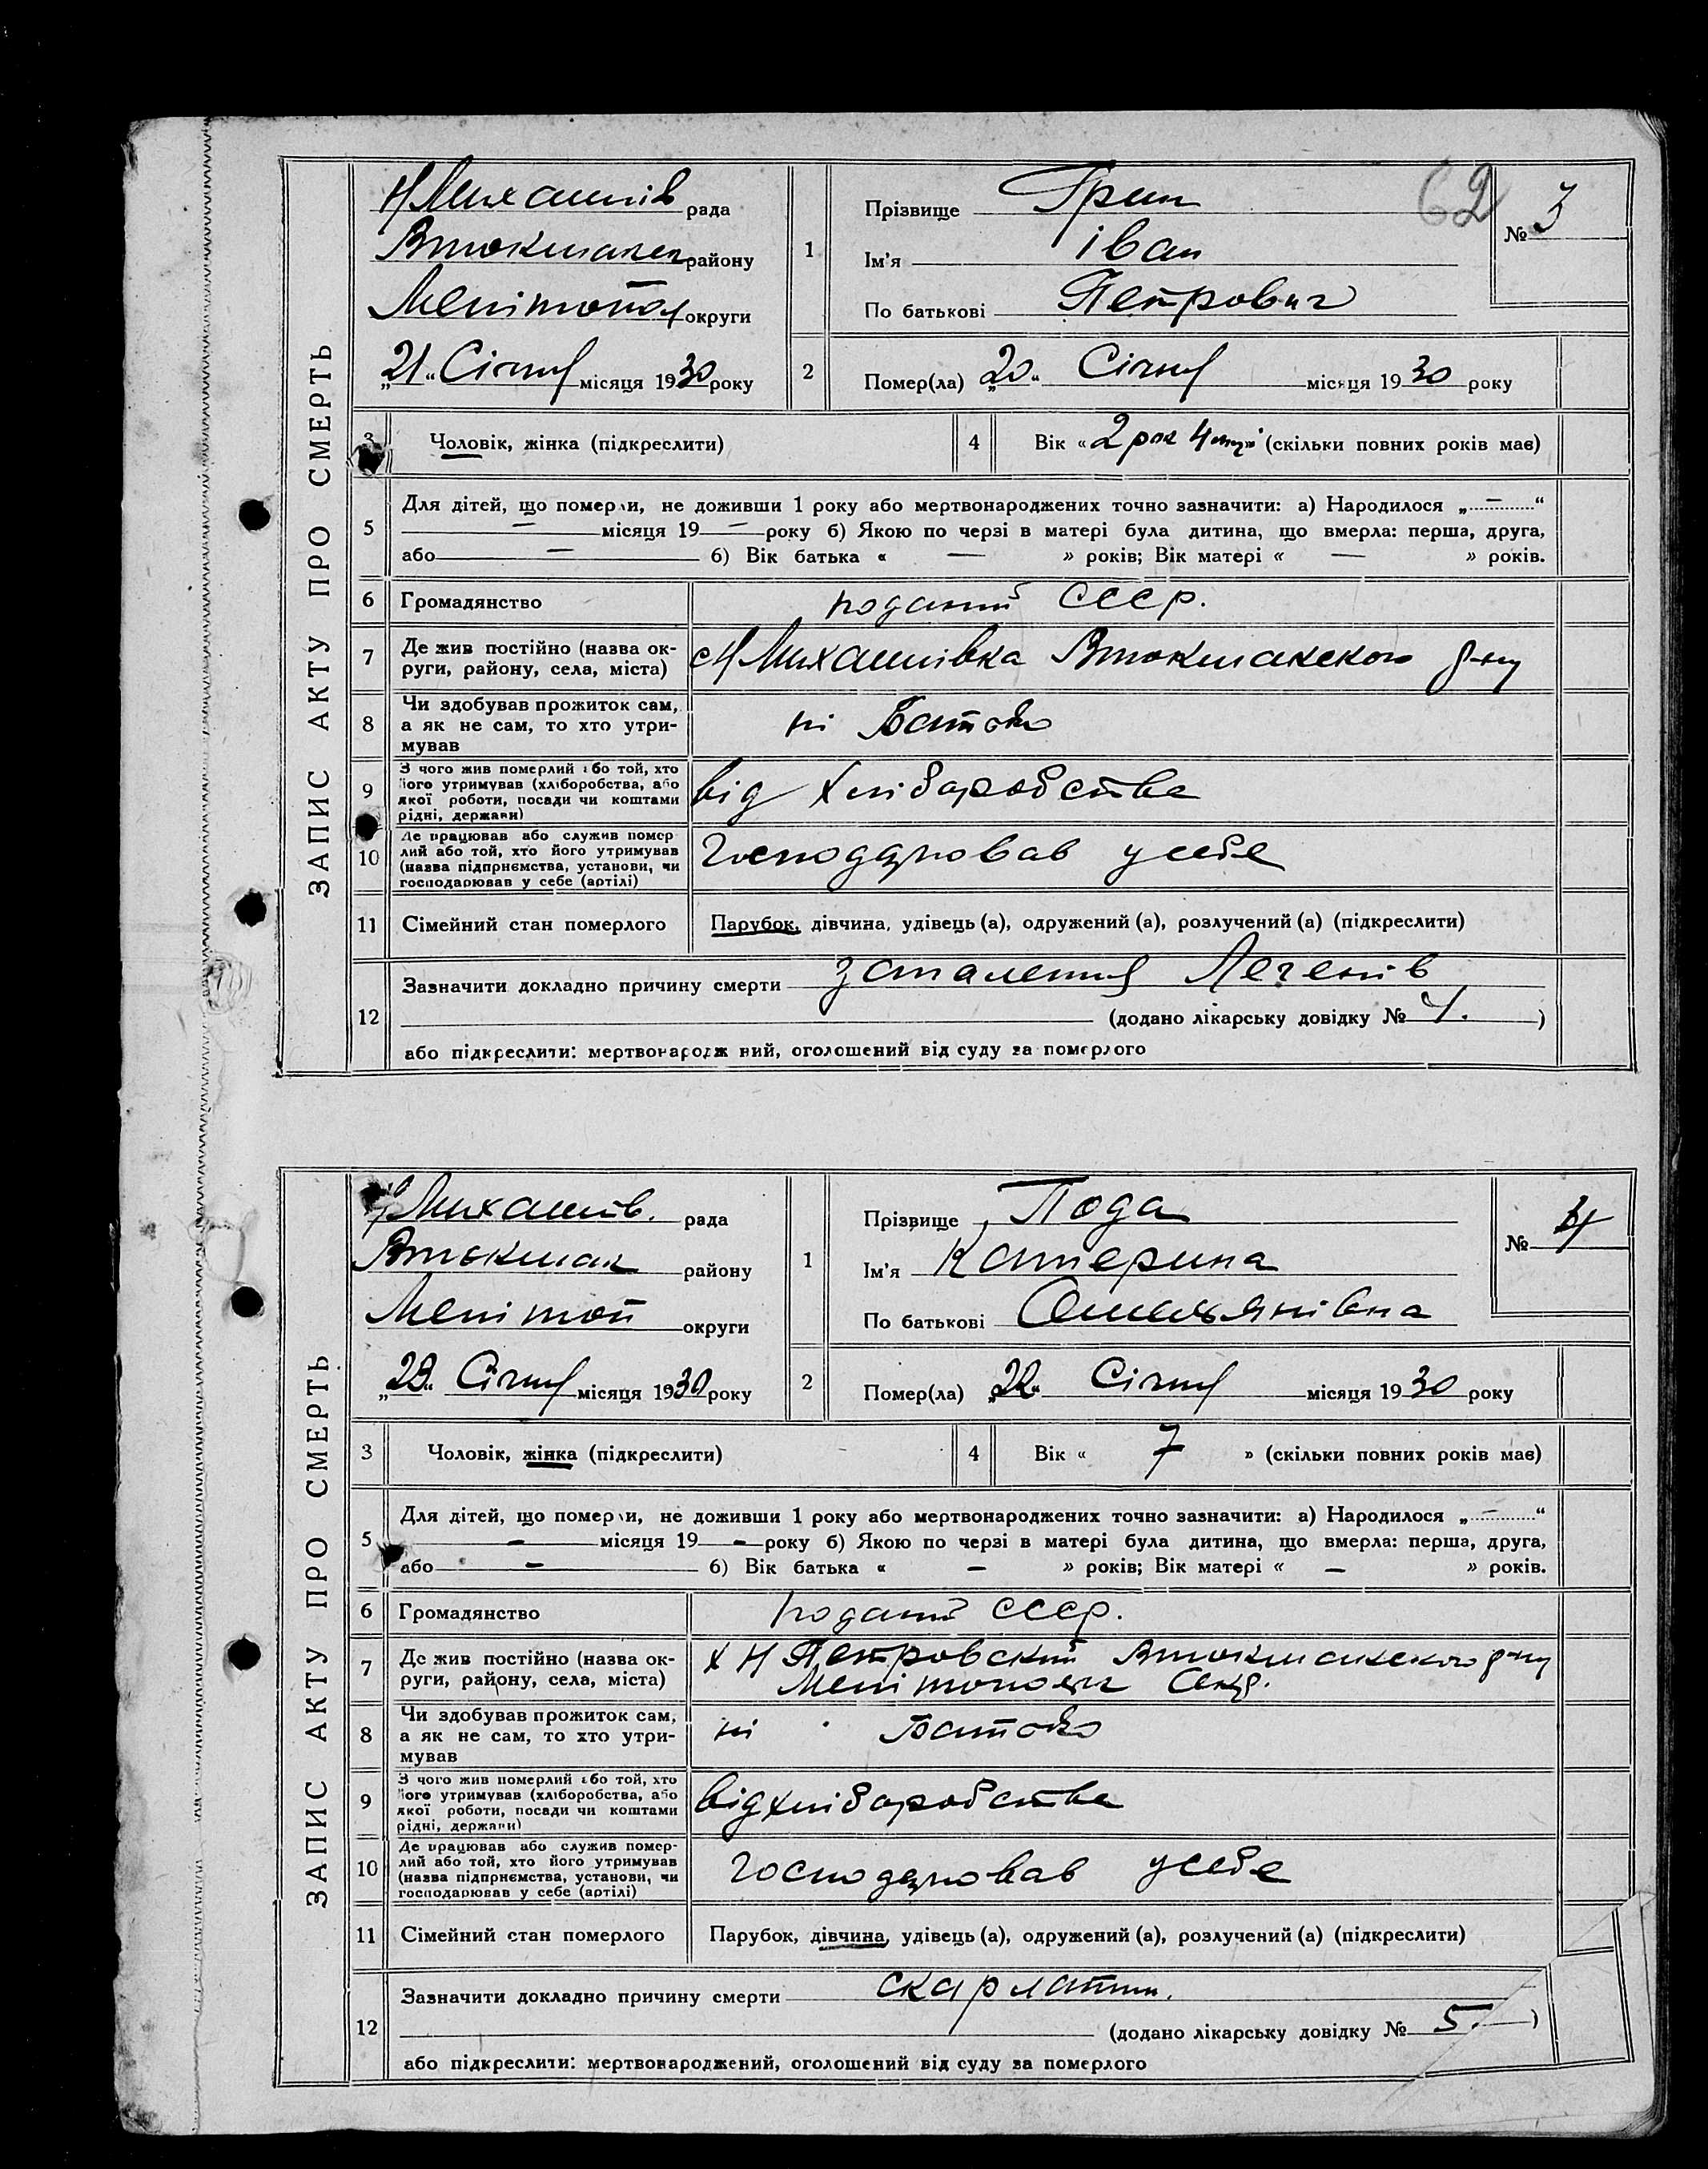 62
ЗАПИС АКТУ ПРО СМЕРТЬ
Н Михайлів рада
Втокмацьк району
Мелітопол округи
„21“ Січня місяця 1930 року
1
Прізвище Гриш
Ім'я Іван
По батькові Петрович
№ 3
2
Помер(ла) „20“ Січня місяця 1930 року
3
Чоловік, жінка (підкреслити)
4
Вік « 2 рок 4 » (скільки повних років має)
5
Для дітей, що померли, не доживши 1 року або мертвонароджених точно зазначити: а) Народилося „ — “
— місяця 19 — року б) Якою по черзі в матері була дитина, що вмерла: перша, друга,
або — б) Вік батька « — » років; Вік матері « — » років.
6
Громадянство
поданий СССР.
7
Де жив постійно (назва ок-
руги, району, села, міста)
с Н Михайлівка Втокмакского р-ну
8
Чи здобував прожиток сам,
а як не сам, то хто утри-
мував
ні Батько
9
З чого жив померлий або той, хто
його утримував (хліборобства, або
якої роботи, посади чи коштами
рідні, держави)
від хліборобства
10
Де працював або служив помер
лий або той, хто його утримував
(назва підприємства, установи, чи
господарював у себе (артілі)
Господарював у себе
11
Сімейний стан померлого
Парубок, дівчина, удівець (а), одружений (а), розлучений (а) (підкреслити)
12
Зазначити докладно причину смерти запалення Легенів
(додано лікарську довідку № 4. )
або підкреслити: мертвонароджений, оголошений від суду за померлого
ЗАПИС АКТУ ПРО СМЕРТЬ
Н Михайлів. рада
Втокмак району
Мелітоп округи
„23“ Січня місяця 1930 року
1
Прізвище Пода
Ім'я Катерина
По батькові Омельянівна
№ 4
2
Помер(ла) „22“ Січня місяця 1930 року
3
Чоловік, жінка (підкреслити)
4
Вік « 7 » (скільки повних років має)
5
Для дітей, що померли, не доживши 1 року або мертвонароджених точно зазначити: а) Народилося „ — “
— місяця 19 — року б) Якою по черзі в матері була дитина, що вмерла: перша, друга,
або — б) Вік батька « — » років; Вік матері « — » років.
6
Громадянство
поданий СССР.
7
Де жив постійно (назва ок-
руги, району, села, міста)
х Н Петровский Втокмакского р-ну
Мелітопольск Окр.
8
Чи здобував прожиток сам,
а як не сам, то хто утри-
мував
ні Батько
9
З чого жив померлий або той, хто
його утримував (хліборобства, або
якої роботи, посади чи коштами
рідні, держави)
від хліборобства
10
Де працював або служив помер-
лий або той, хто його утримував
(назва підприємства, установи, чи
господарював у себе (артілі)
Господарював у себе
11
Сімейний стан померлого
Парубок, дівчина, удівець (а), одружений (а), розлучений (а) (підкреслити)
12
Зазначити докладно причину смерти скарлатин.
(додано лікарську довідку № 5. )
або підкреслити: мертвонароджений, оголошений від суду за померлого